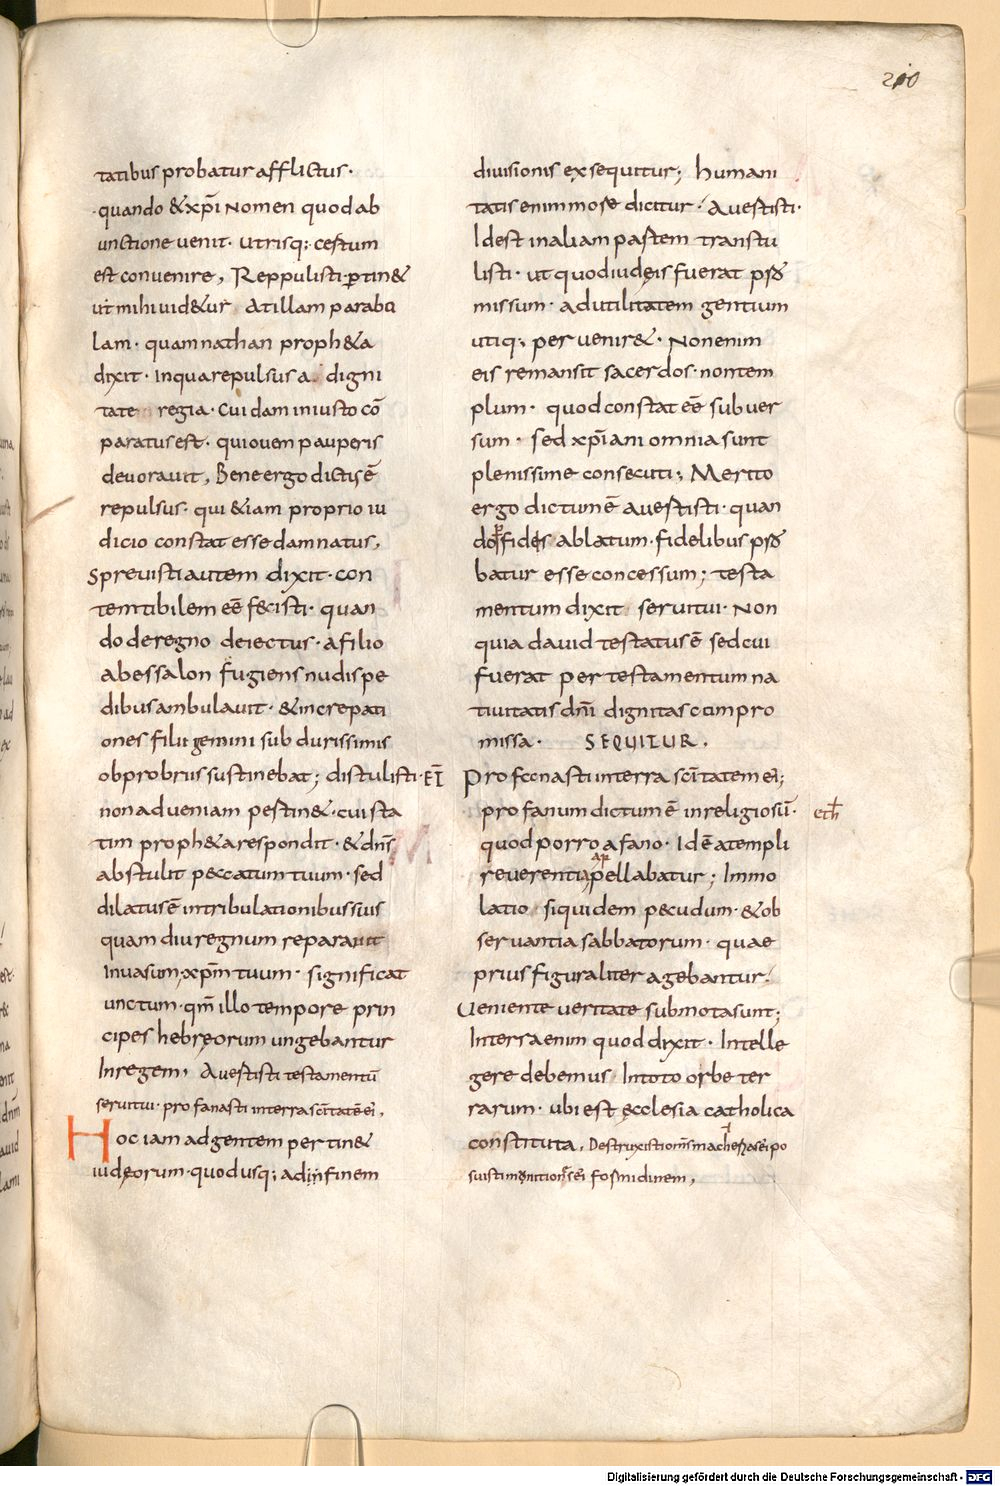 200
tatibus probatur afflictus·
quando &xp̄i nomen quod ab
unctione uenit· utrisq; cestum
est conuenire, Reppulisti· ptin&
ut mihi uid&ur Ad illam parabo
lam· quam nathan proph&a
dixit· Inqua repulsus a digni
tate regia· Cuidam iniusto cō
paratus est· qui ouem pauperis
deuorauit, Bene ergo dictus ē
repulsus· qui &iam proprio iu
dicio constat esse damnatus,
Spreuisti autem dixit· con
temtibilem eē fecisti· quan
do de regno deiectus· a filio
abessalon fugiens nudis pe
dibus ambulauit· &increpati
ones filii gemini sub durissimis
obprobriis sustinebat; distulisti· EĪ
non adueniam pestin&· cui sta
tim proph&a respondit· &dn̄s
abstulit peccatum tuum· sed
dilatus ē in tribulationibus suis
quam diu regnum repararet
Inuasum; xp̄m tuum· significat
unctum· qm̄ illo tempore prin
cipes hebreorum ungebantur
In regem, Auestisti testamentū
seruitui· profanasti in terra sc̄itatē ei,
Hoc iam ad gentem pertin&
iudeorum· quod usq; ad infinem
diuisionis exsequitur; humani
tatis enim mose dicitur· Auestisti·
Id est in aliam pastem transtu
listi· ut quod iudeis fuerat
missum· ad utilitatem gentium
utiq; peruenir&· Non enim
eis remansit sacerdos· non tem
plum· quod constat eē subuer
sum· sed xp̄iani omnia sunt
plenissime consecuti; Merito
ergo dictum ē Auestisti· quan
do fides ablatum· fidelibus
batur esse concessum; testa
mentum dixit serui tui· Non
quia dauid testatus ē sed cui
fuerat per testamentum na
tiuitatis dn̄i dignitas conpro
missa· SEQUITUR.
Profanasti in terra sc̄itatem ei;
profanum dictum ē inreligiosū·
eth
quod porro a fano· Id ē a templi
reuerentia ap pellabatur; Immo
latio siquidem pecudum· &ob
seruantia sabbatorum· quae
prius figuraliter agebantur·
Ueniente ueritate submota sunt;
In terra enim quod dixit· Intelle
gere debemus In toto orbe ter
rarum· ubi est ecclesia catholica
constituta, Destruxisti om̄s macherias ei po
suisti monitiones ei fosmidinem,
Digitalisierung gefördert durch die Deutsche Forschungsgemeinschaft - DFG